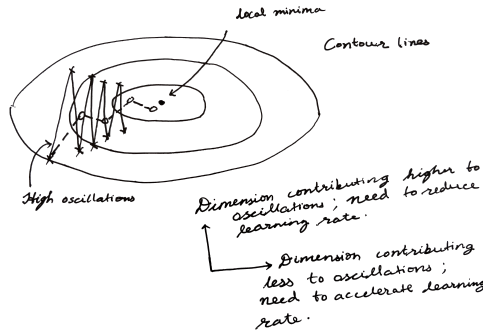 local minima
Contour lines
High oscillations
Dimension contributing higher to
oscillations; need to reduce
learning rate.
Dimension contributing
less to oscillations;
need to accelerate learning
rate.